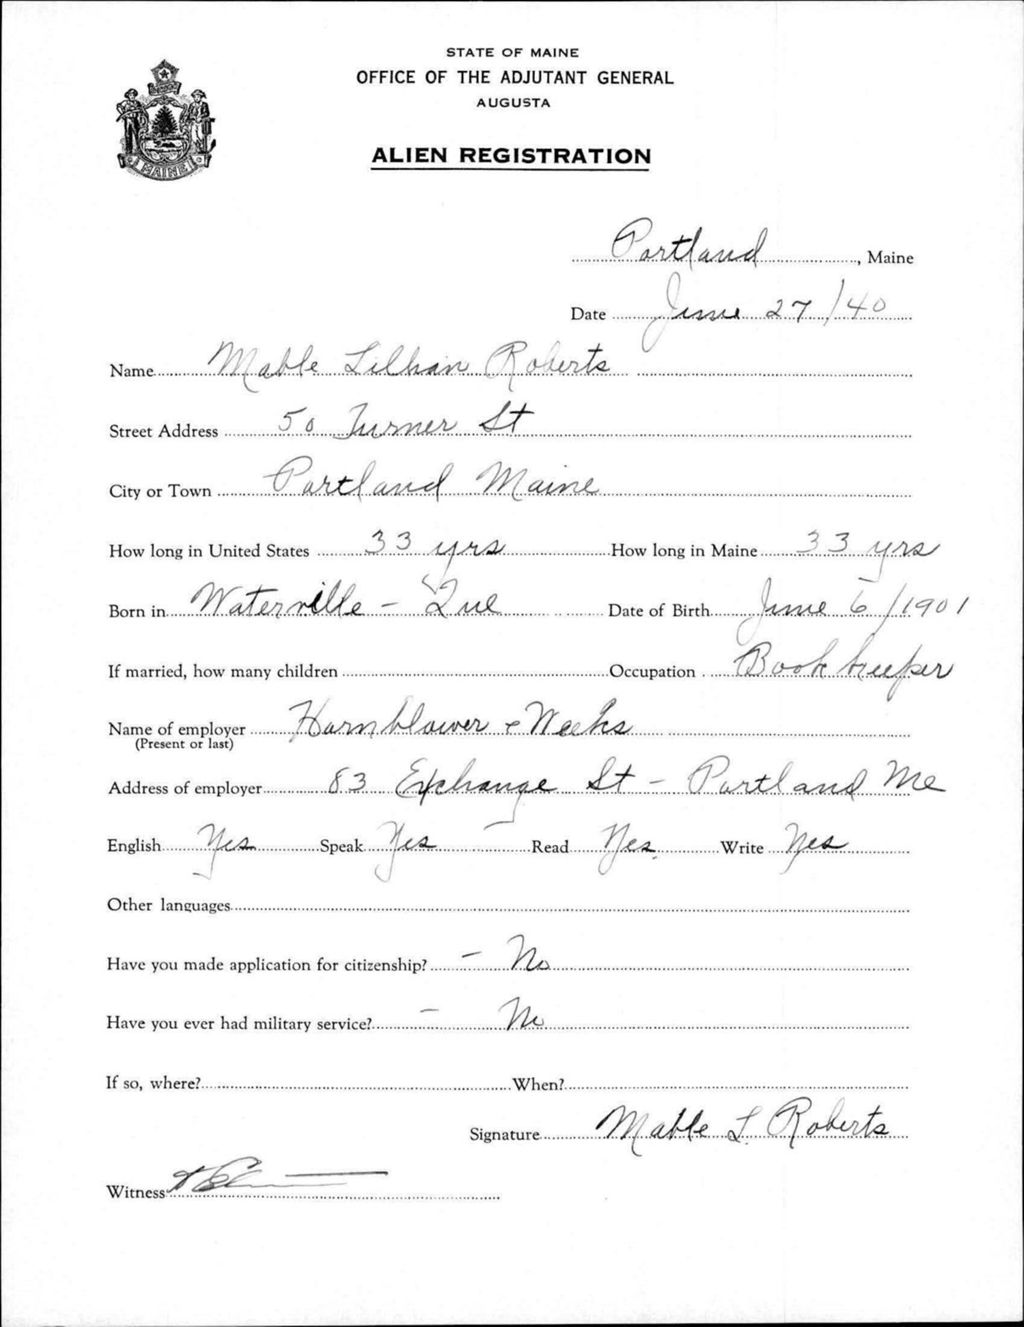 STATE OF MAINE
OFFICE OF THE ADJUTANT GENERAL
AUGUSTA
ALIEN REGISTRATION
MAINE
Portland, Maine
Date June 27/40
Name Mable Lillian Roberts
Street Address 50 Turner St
City or Town Portland Maine
How long in United States 33 yrs How long in Maine 33 yrs
Born in Waterville - Que Date of Birth June 6/1901
If married, how many children Occupation Bookkeeper
Name of employer Hornblower & Weeks
(Present or last)
Address of employer 83 Exchange St - Portland Me
English Yes Speak Yes - Read Yes Write Yes
Other languages
Have you made application for citizenship? - No
Have you ever had military service? - No
If so, where? When?
Signature Mable L. Roberts
Witness